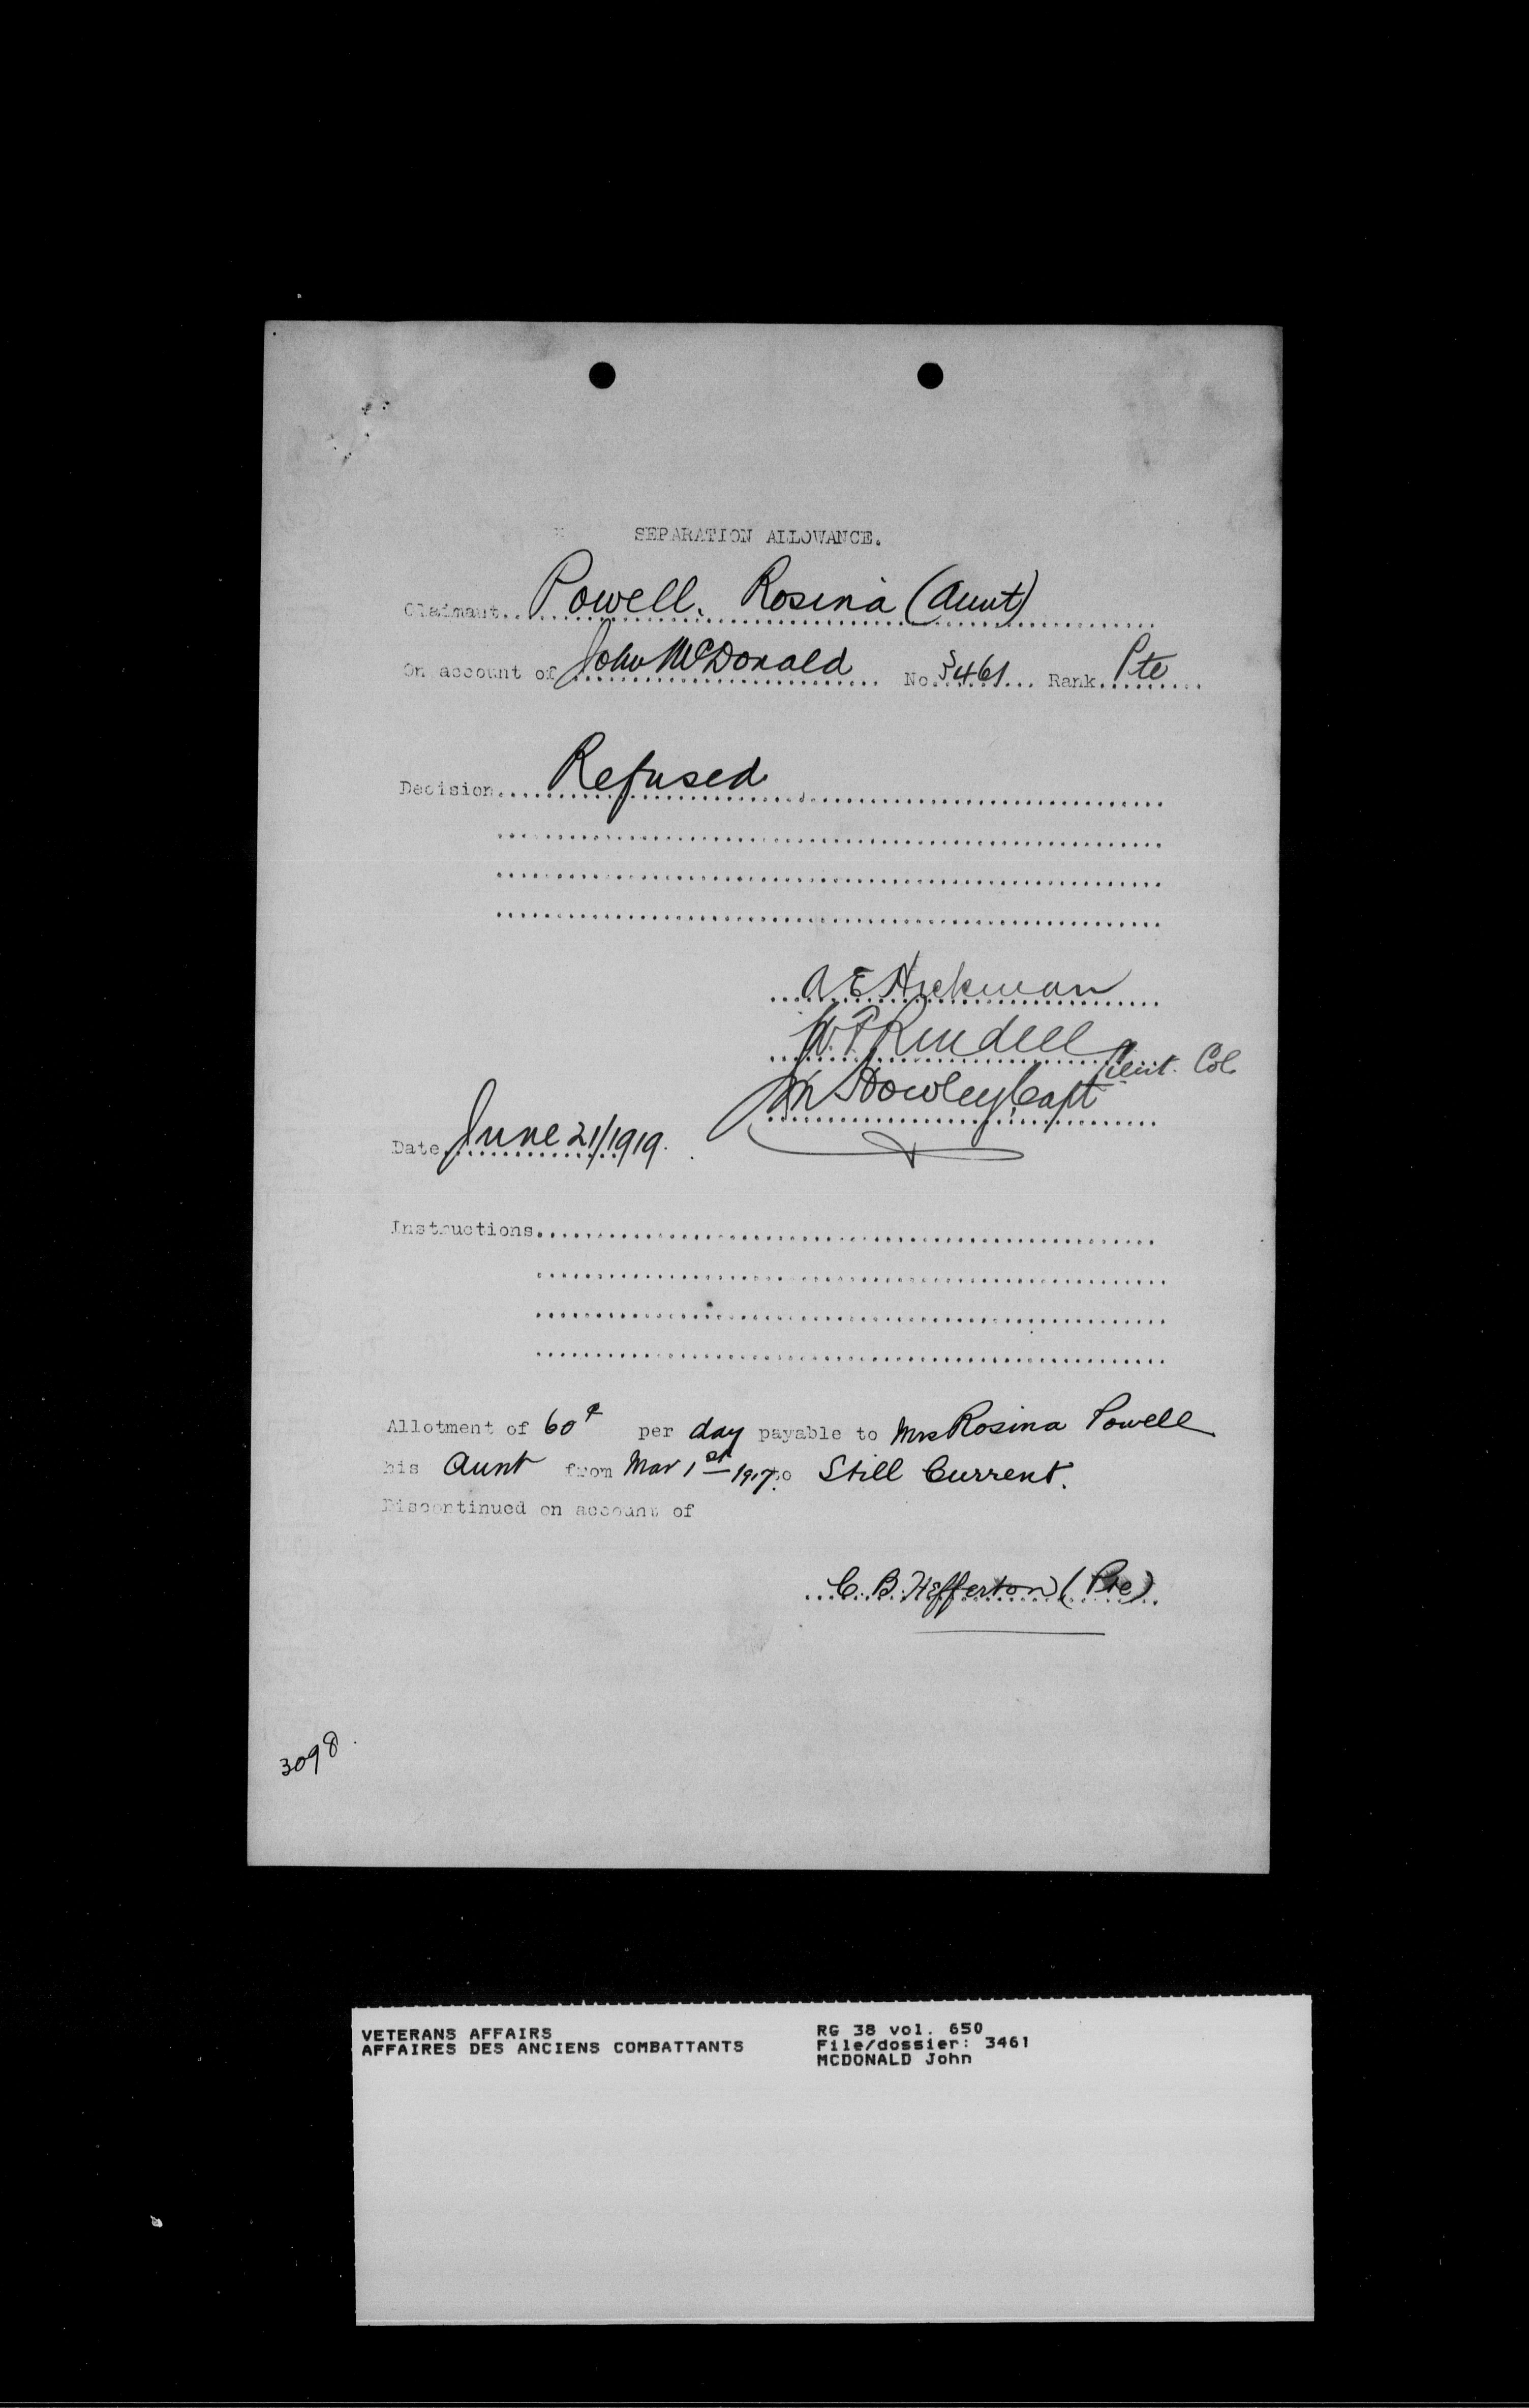 SEPARATION ALLOWANCE.
Claimant.. Powell, Rosina (Aunt)
On account of John McDonald No. 3461 Rank. Pte
Decision.... Refused
A E Hickman
W. F. Rendell Lieut. Col.
Howley Capt
Date June 21/1919.
Instructions
Allotment of 60¢ per day payable to Mrs Rosina Powell
his Aunt from Mar 1st - 1917. to Still Current.
Discontinued on account of
C. B. Hefferton (Pte)
3098.
VETERANS AFFAIRS
AFFAIRES DES ANCIENS COMBATTANTS
RG 38 vol. 650
File/dossier: 3461
MCDONALD John